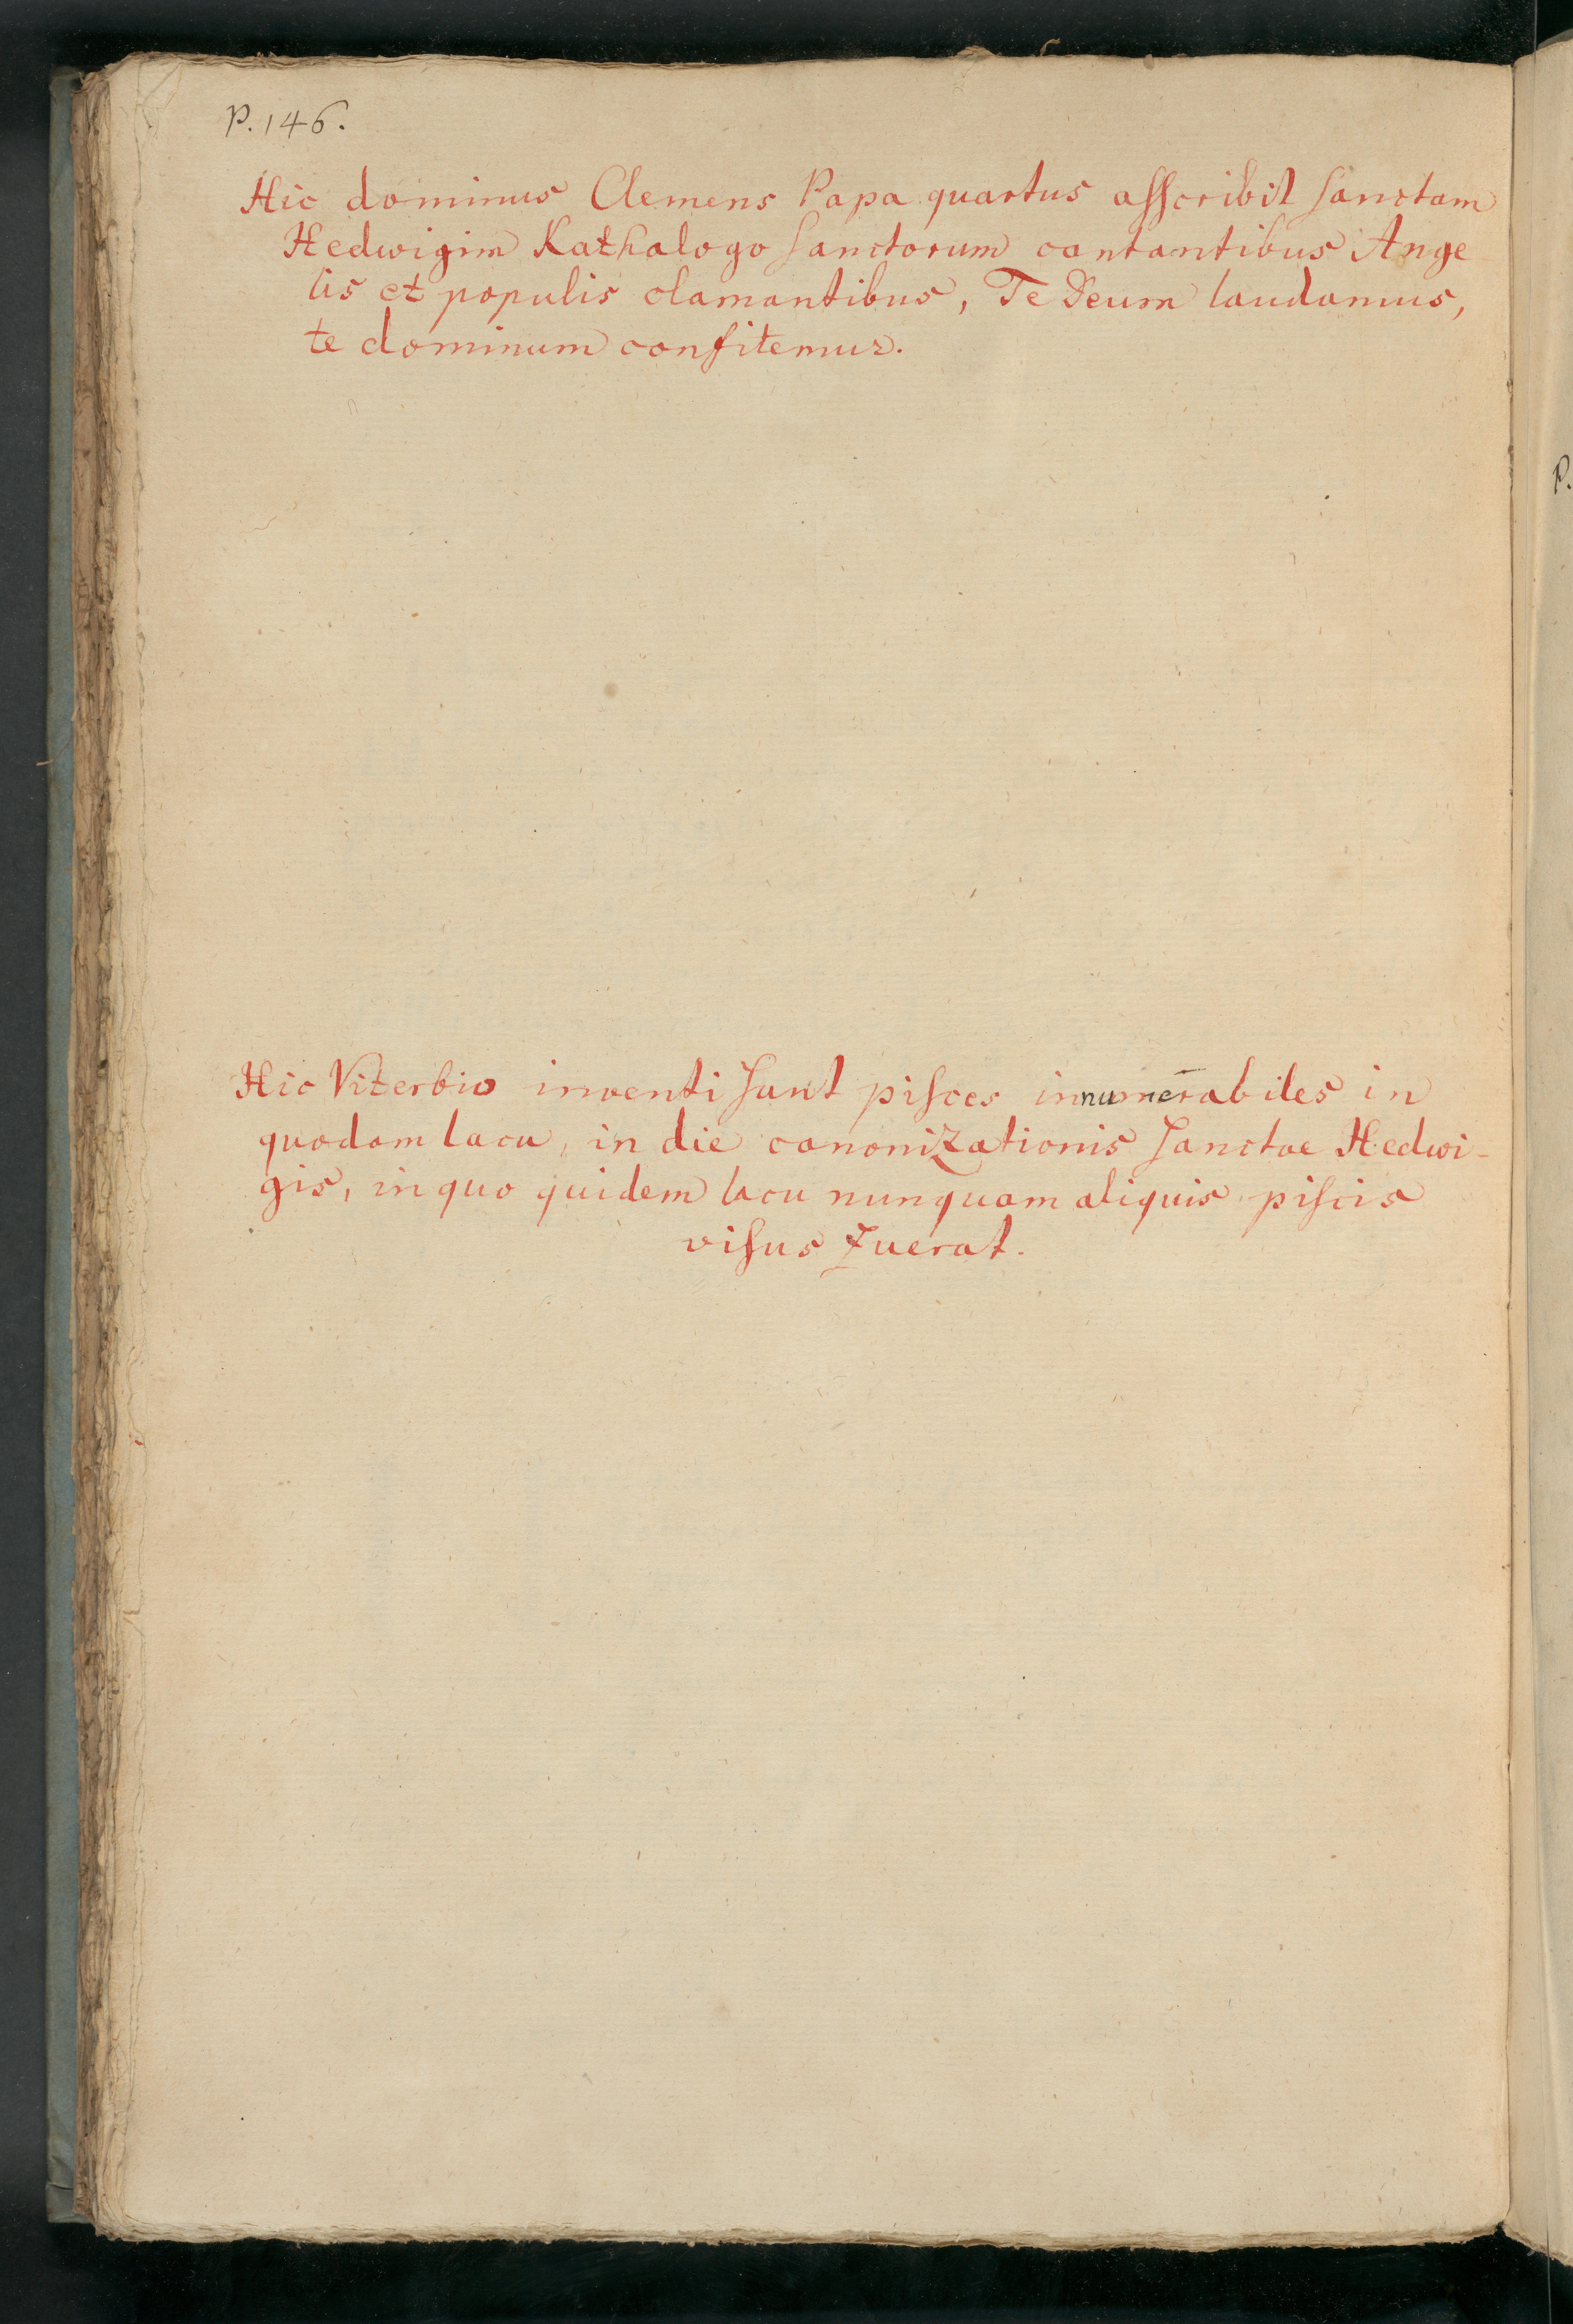 P. 146.
Hic dominus Clemens Papa quartus aſſcribit ſanctam
Hedwigim Kathalogo ſanctorum cantantibus Ange
lis et populis clamantibus, Te Deum laudamus,
te dominum confitemur.
Hic Viterbio inventi ſunt piſces innumerabiles in
quodam lacu, in die canonizationis ſanctae Hedwi-
gis, in quo quidem lacu nunquam aliquis piſcis
viſus fuerat.
P.